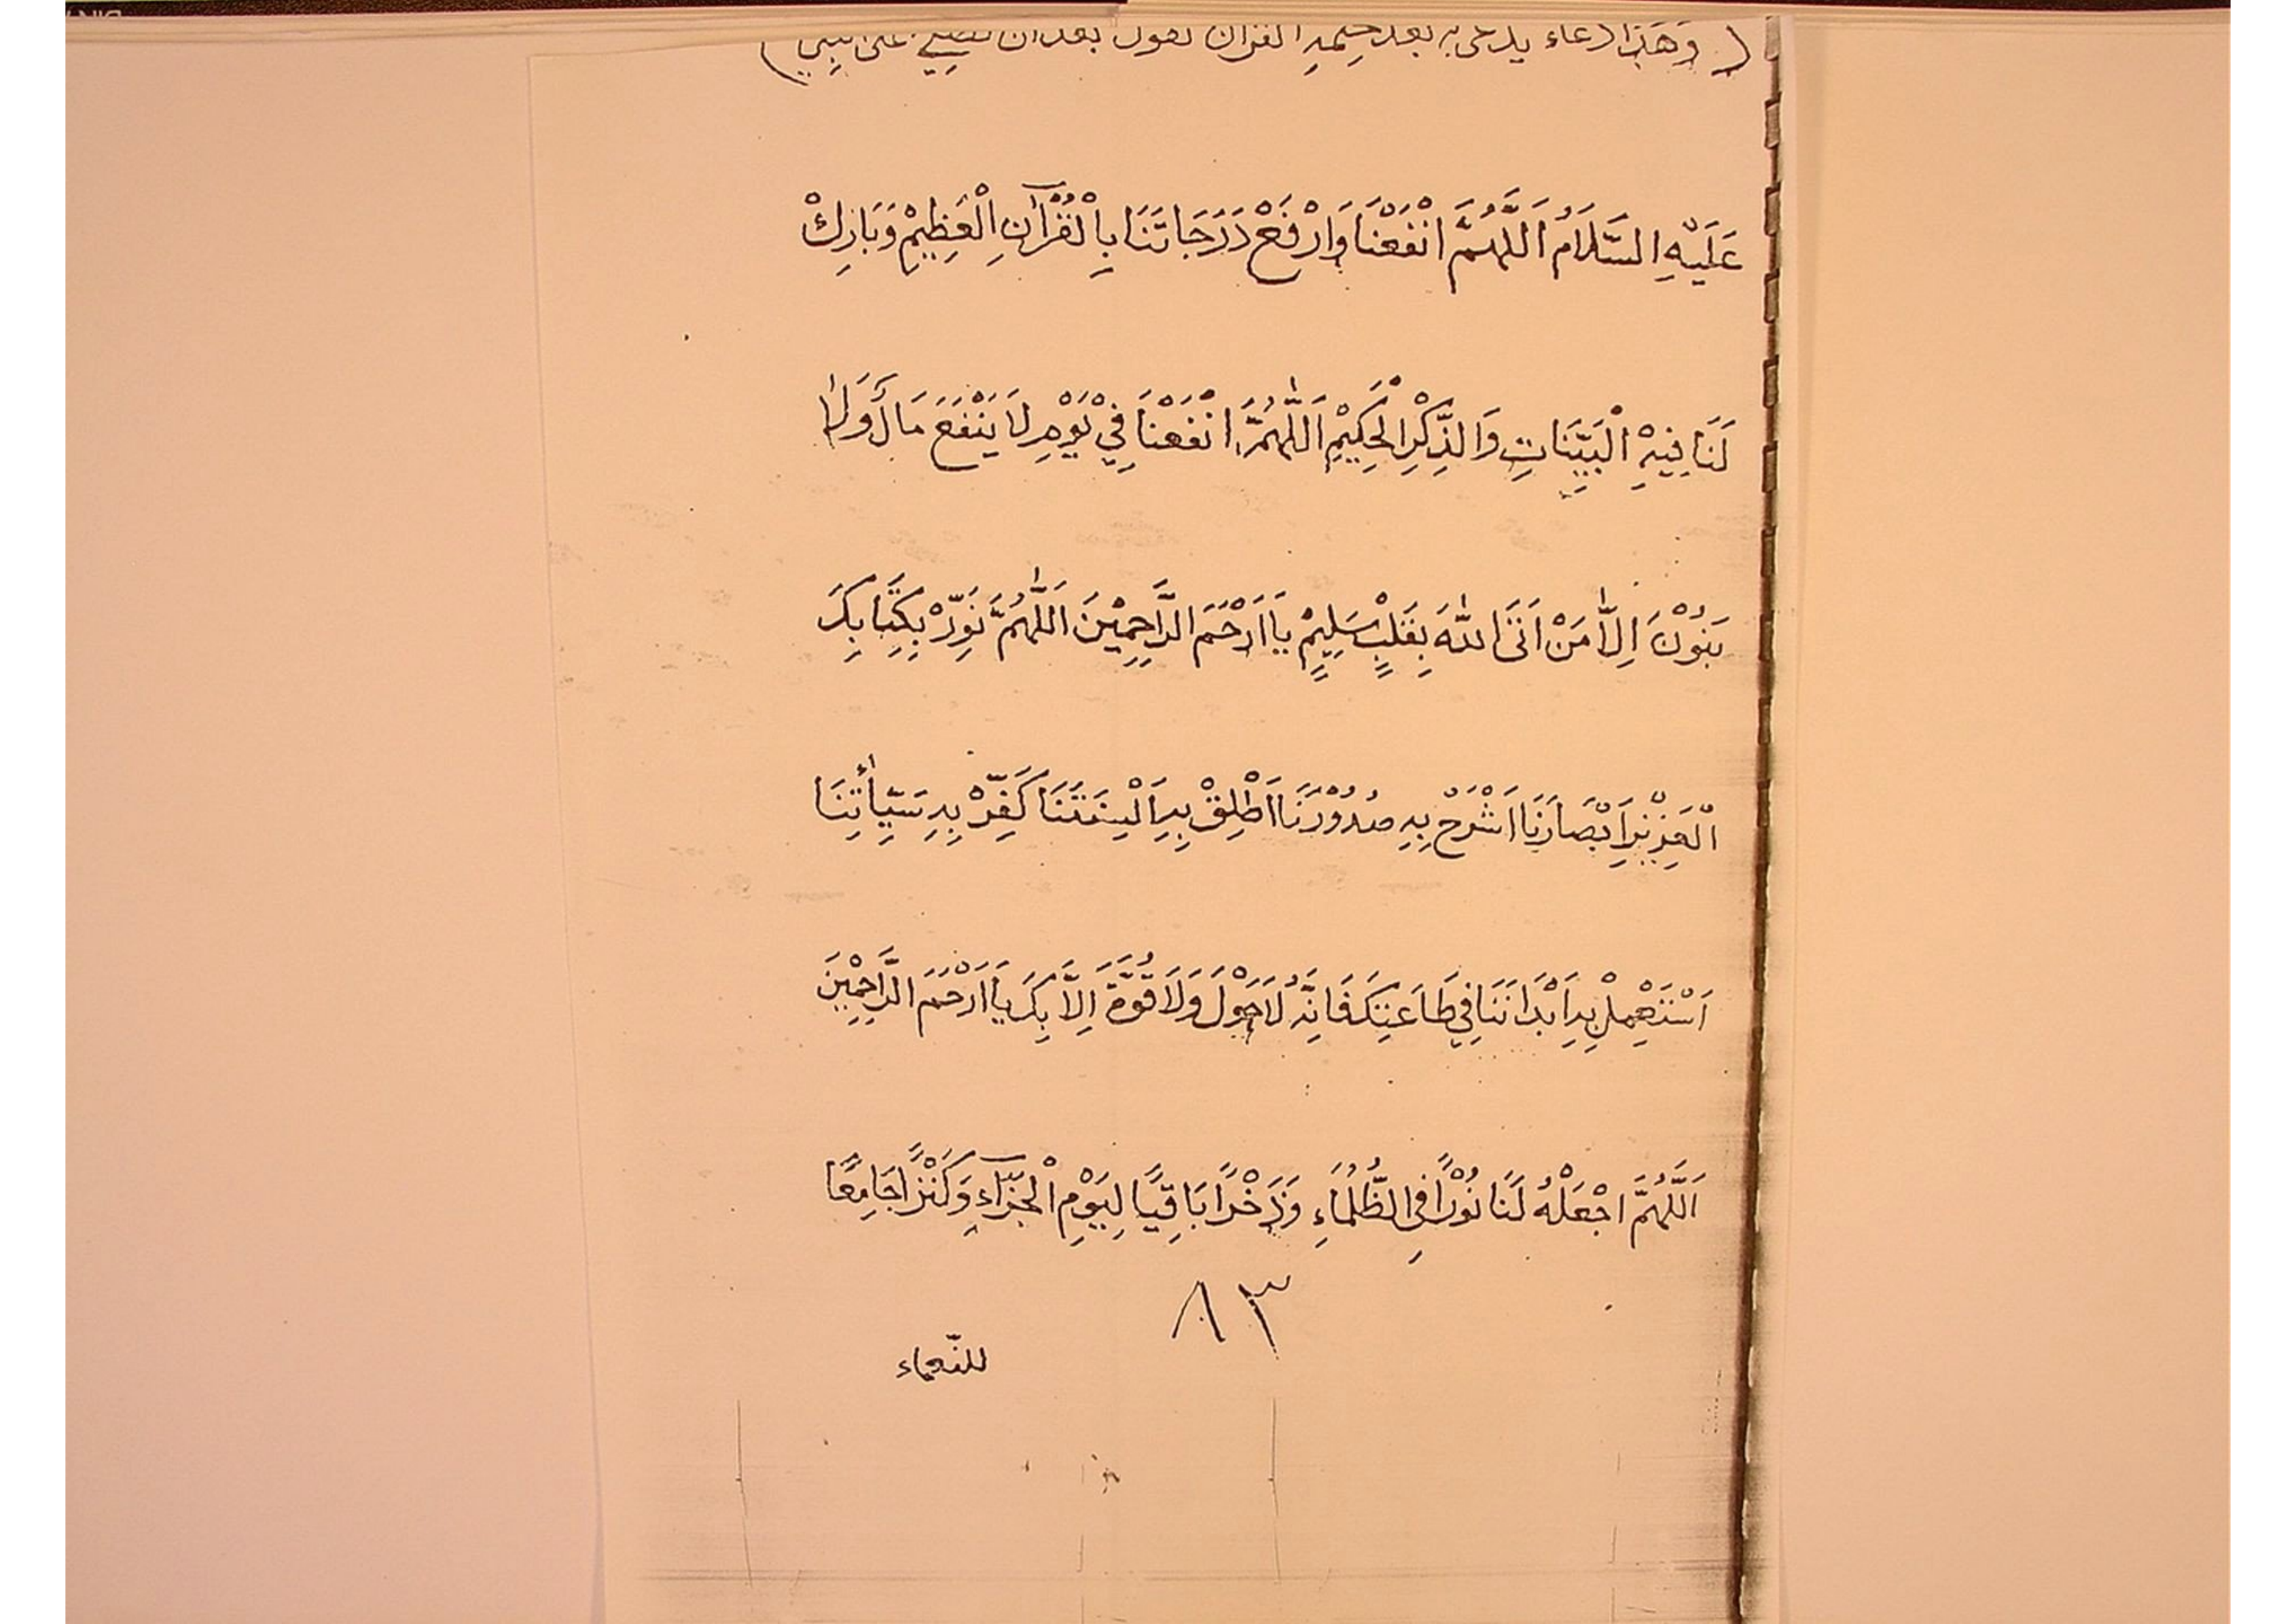 ( وَهَذَا دعاء يدعى به بعد ختمةِ القرآن تقول بعد أن تصلي على النبي )
عَلَيْهِ السَّلَامُ اَللَّهُمَّ انْفَعْنَا وَارْفَعْ دَرَجَاتَنَا بِالْقُرْآنِ الْعَظِيْمِ وَبَارِكْ
لَنَا فِيْهِ الْبَيِّنَاتِ وَالذِّكْرِ الْحَكِيْمِ اَللّٰهُمَّ انْفَعْنَا فِيْ يَوْمِ لَا يَنْفَعَ مَالٌ وَلَا
بَنُوْنَ اِلَّا مَنْ اَتَى اللّٰهَ بِقَلْبٍ سَلِيمٍ يَا اَرْحَمَ الرَّاحِمِيْنَ اَللّٰهُمَّ نَوِّرْ بِكِتَابِكَ
الْعَزِيْزِ اَبْصَارَنَا اَشْرَحْ بِهِ صُدُوْرَنَا اَطْلِقْ بِهِ اَلْسِنَتَنَا كَفِّرْ بِهِ سَيِّأٰتِنَا
اَسْتَعْمِلْ بِهِ اَبْدَانَنَا فِي طَاعَتِكَ فَانِّهُ لَا حَوْلَ وَلَا قُوَّةَ اِلَّا بِكَ يَا اَرْحَمَ الرَّاحِمِيْنَ
اَللَّهُمَّ اجْعَلْهُ لَنَا نُوْرًا فِى الظُّلُمَاءِ وَذَخْرًا بَاقِيًا لِيَوْمِ الْجَزَآءِ وَكَنْزًا جَامِعًا
٨٣
للنّعماء